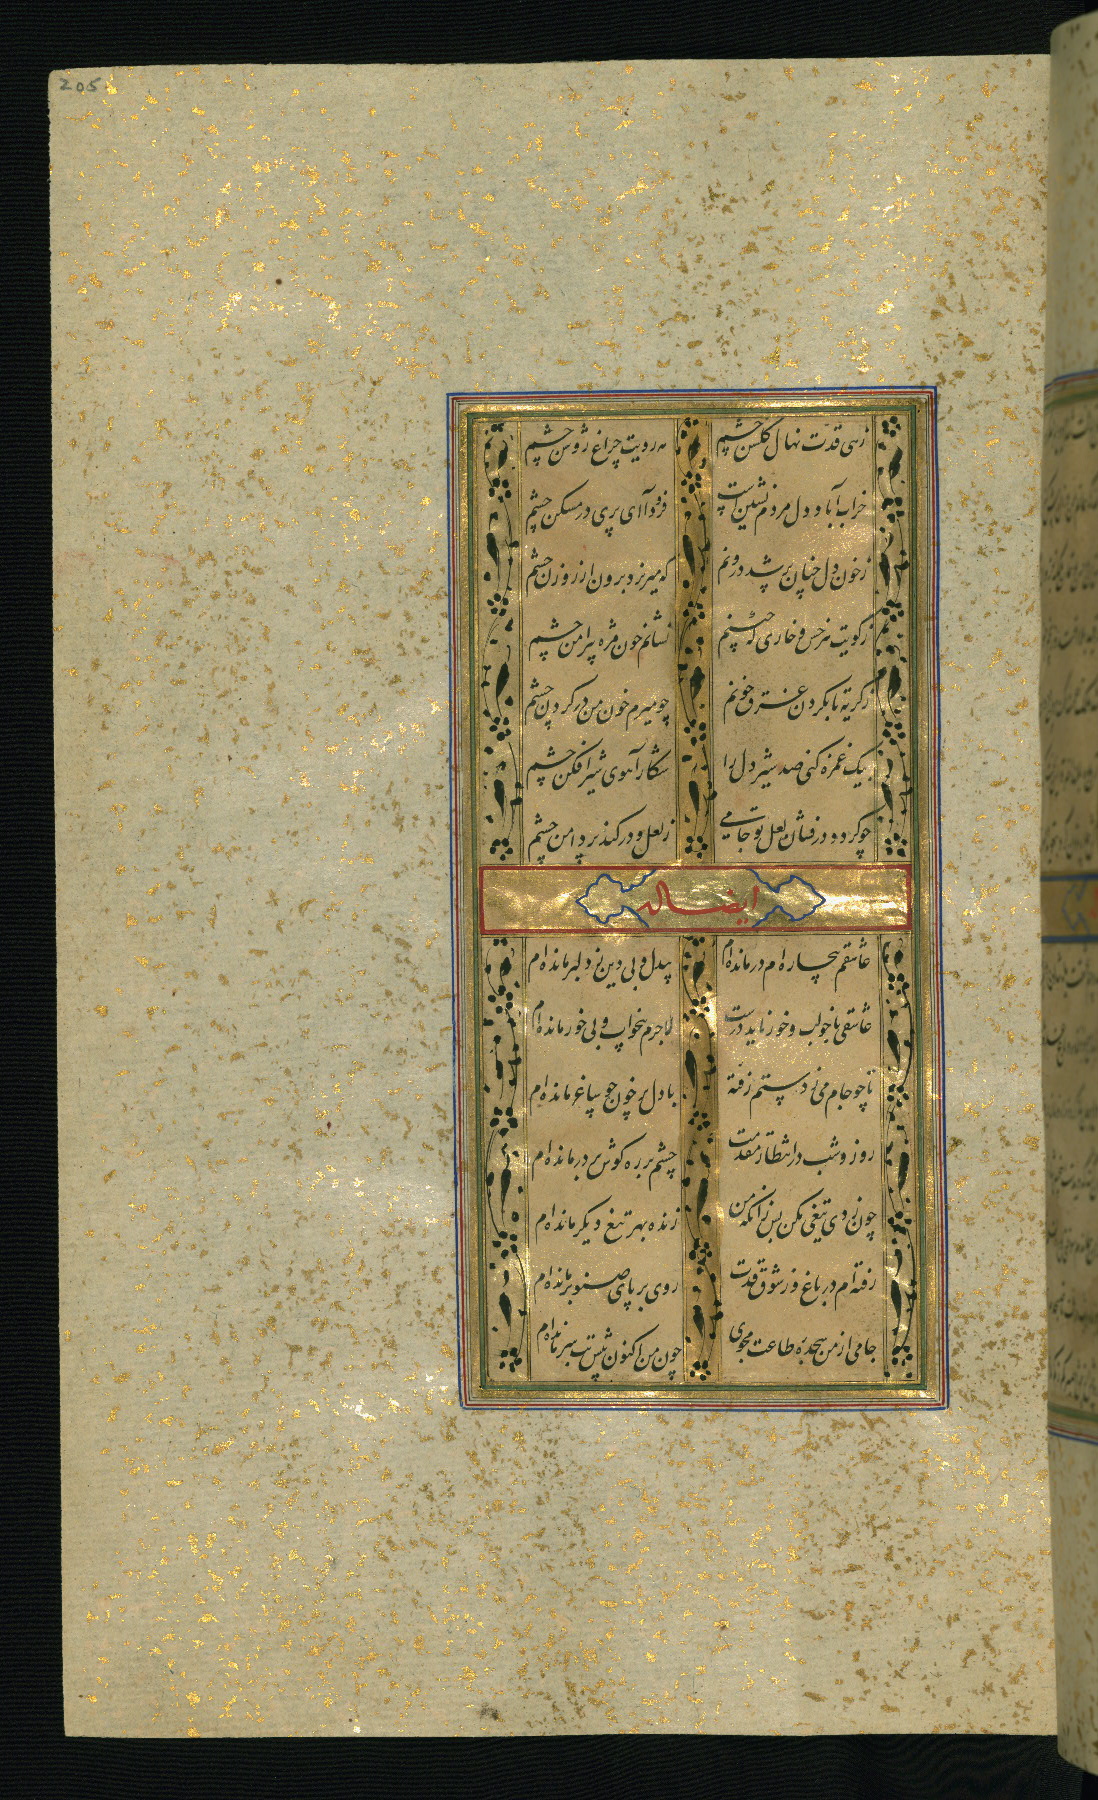 205
زهی قدت نهال گلشن چشم
مه رویت چراغ روشن چشم
خراب آباد دل مردم نشین است
فرود آ ای پری در مسکن چشم
ز خون دل چنان پر شد درونم
که میریزد برون از روزن چشم
ز کویت هر خس و خاری که چینم
نشانم چون مژه پیرامن چشم
ز گریه تا بگردن غرق خونم
چو میرم خون من در گردن چشم
بیک غمزه کنی صد شیر دل را
شکار آهوی شیرافکن چشم
چو گردد درفشان لعل تو جامی
ز لعل و در کند پر دامن چشم
ایضا له
عاشقم بیچاره ام درمانده ام
بیدل و بی دین ز دلبر مانده ام
عاشقی با خواب و خور ناید درست
لاجرم بیخواب و بی خور مانده ام
تا چو جام می ز دستم رفته
با دل پر خون چو ساغر مانده ام
روز و شب در انتظار مقدمت
چشم بر ره گوش بر در مانده ام
چون زدی تیغی مکن بس زانکه من
زنده بهر تیغ دیگر مانده ام
رفته ام در باغ و ز شوق قدت
روی بر پای صنوبر مانده ام
جامی از من سجده طاعت مجوی
چون من اکنون پیش بت سر مانده ام